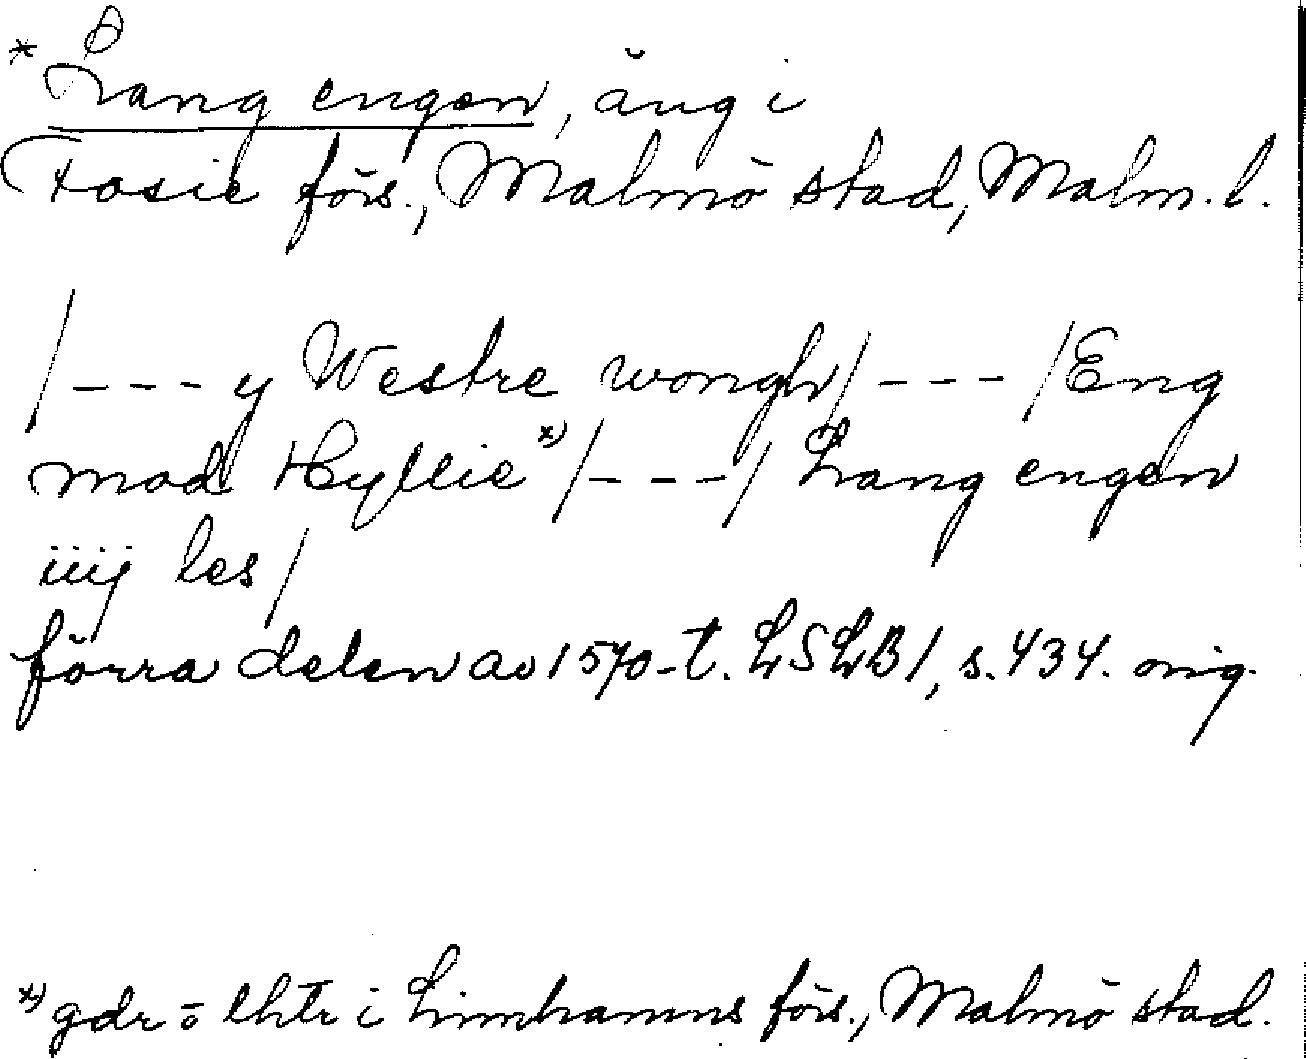 * Lang engen, äng i
Fosie förs., Malmö stad, Malm. l.
/---y Westre wongh/---/Eng
mod Hyllie *) /---/ Lang engen
iiij les/
förra delen av 1570-t. LSLB1, s. 434. orig.
*) gdr o lhtr i Limhamns förs., Malmö stad.